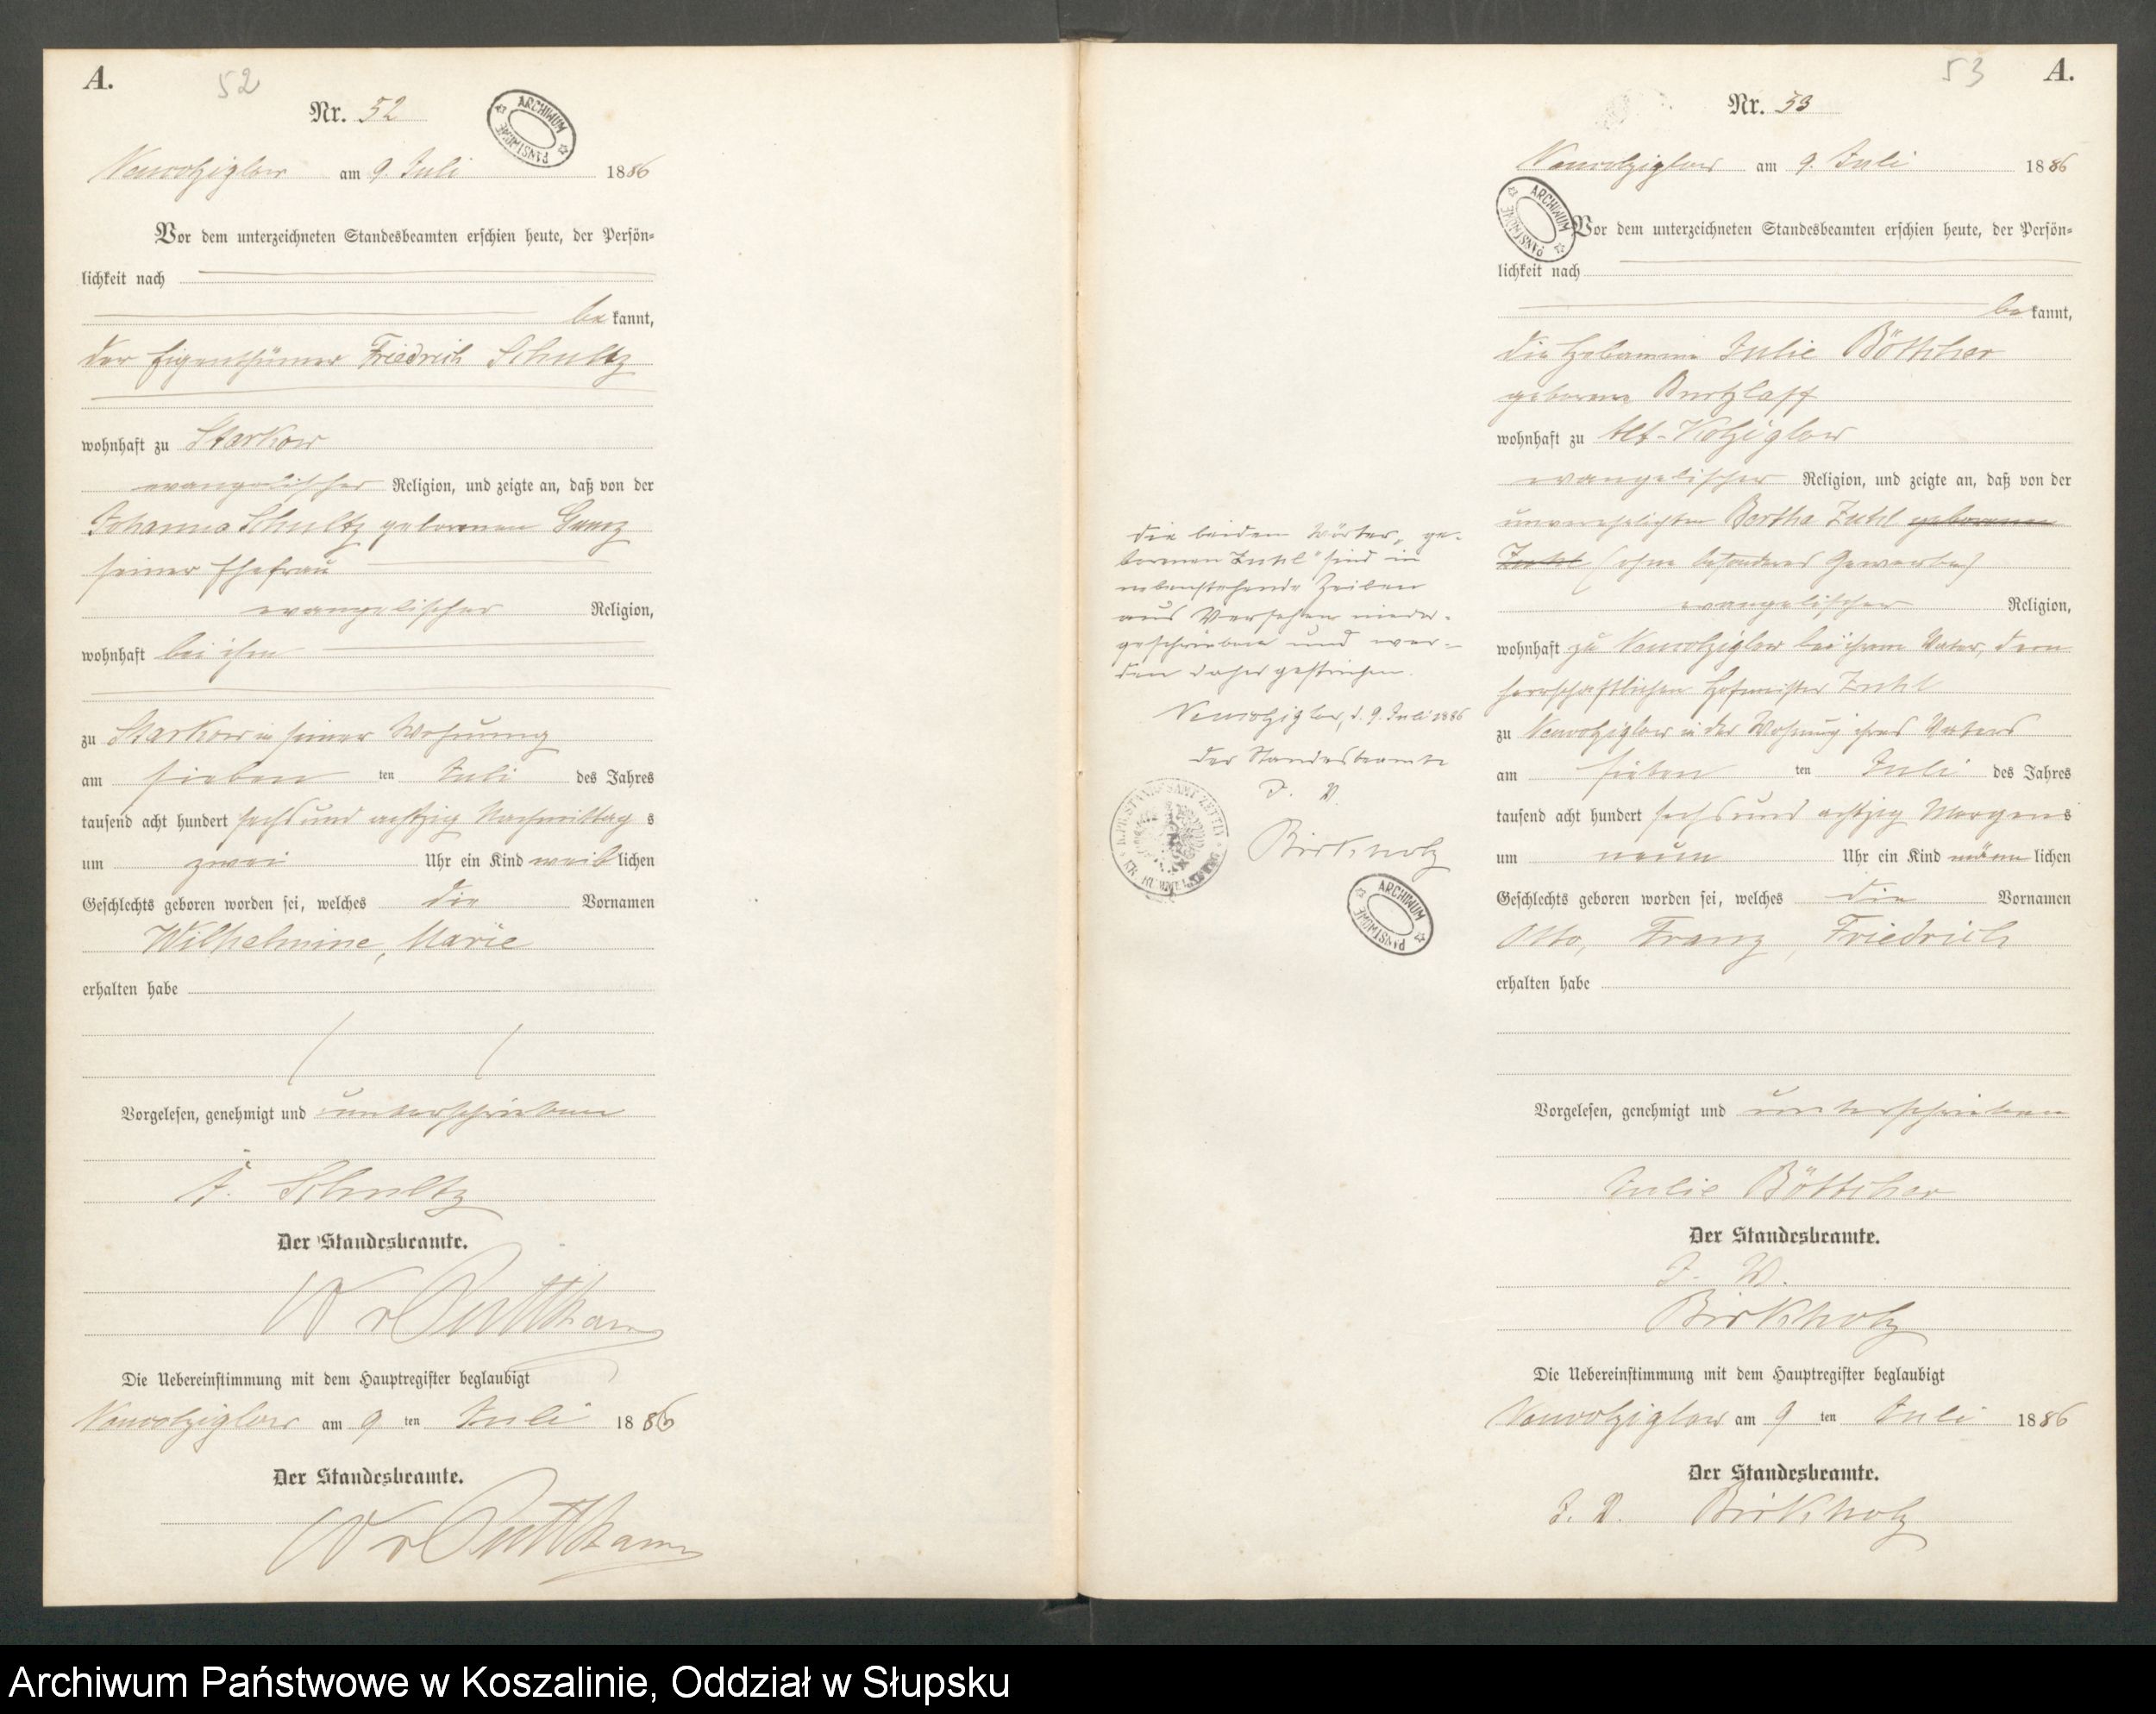 A.
52
Nr. 52
ARCHIWUM PAŃSTWOWE
Neucolziglow am 9. Juli 1886
Vor dem unterzeichneten Standesbeamten erschien heute, der Persön-
lichkeit nach
bekannt,
der Eigenthümer Friedrich Schultz
wohnhaft zu Starkow
evangelischer Religion, und zeigte an, daß von der
Johanna Schultz geborenen
seiner Ehefrau
evangelischer Religion,
wohnhaft bei ihm
zu Starkow in seiner Wohnung
am sieben ten Juli des Jahres
tausend acht hundert sechs und achtzig Nachmittags
um zwei Uhr ein Kind weiblichen
Geschlechts geboren worden sei, welches die Vornamen
Wilhelmine, Marie
erhalten habe
Vorgelesen, genehmigt und unterschrieben
F. Schultz
Der Standesbeamte.
W v Puttkamer
Die Uebereinstimmung mit dem Hauptregister beglaubigt
Neucolziglow am 9 ten Juli 1886
Der Standesbeamte.
W v Puttkamer
die beiden Wörter „ge-
borenen Zuhl" sind in
nebenstehende Zeilen
aus Versehen nieder-
geschrieben und wer-
den daher gestrichen.
Neucolziglow, d. 9. Juli 1886
Der Standesbeamte
J. V.
Birkholz
ARCHIWUM PAŃSTWOWE
53
A.
Nr. 53
Neucolziglow am 9. Juli 1886
ARCHIWUM PAŃSTWOWE
Vor dem unterzeichneten Standesbeamten erschien heute, der Persön-
lichkeit nach
bekannt,
die Hebamme Julie Böttcher
geborene Burtzlaff
wohnhaft zu Alt-Kolziglow
evangelischer Religion, und zeigte an, daß von der
unverehelichten Bertha Zuhl geborenen
Zuhl (ohne besonderes Gewerbe)
evangelischer Religion,
wohnhaft zu Neucolziglow bei ihrem Vater, dem
herrschaftlichen Hofmeister Zuhl
zu Neucolziglow in der Wohnung ihres Vaters
am sieben ten Juli des Jahres
tausend acht hundert sechs und achtzig Morgens
um neun Uhr ein Kind männlichen
Geschlechts geboren worden sei, welches die Vornamen
Otto, Franz, Friedrich
erhalten habe
Vorgelesen, genehmigt und unterschrieben
Julie Böttcher
Der Standesbeamte.
J. V.
Birkholz
Die Uebereinstimmung mit dem Hauptregister beglaubigt
Neucolziglow am 9 ten Juli 1886
Der Standesbeamte.
J. V. Birkholz
Archiwum Państwowe w Koszalinie, Oddział w Słupsku